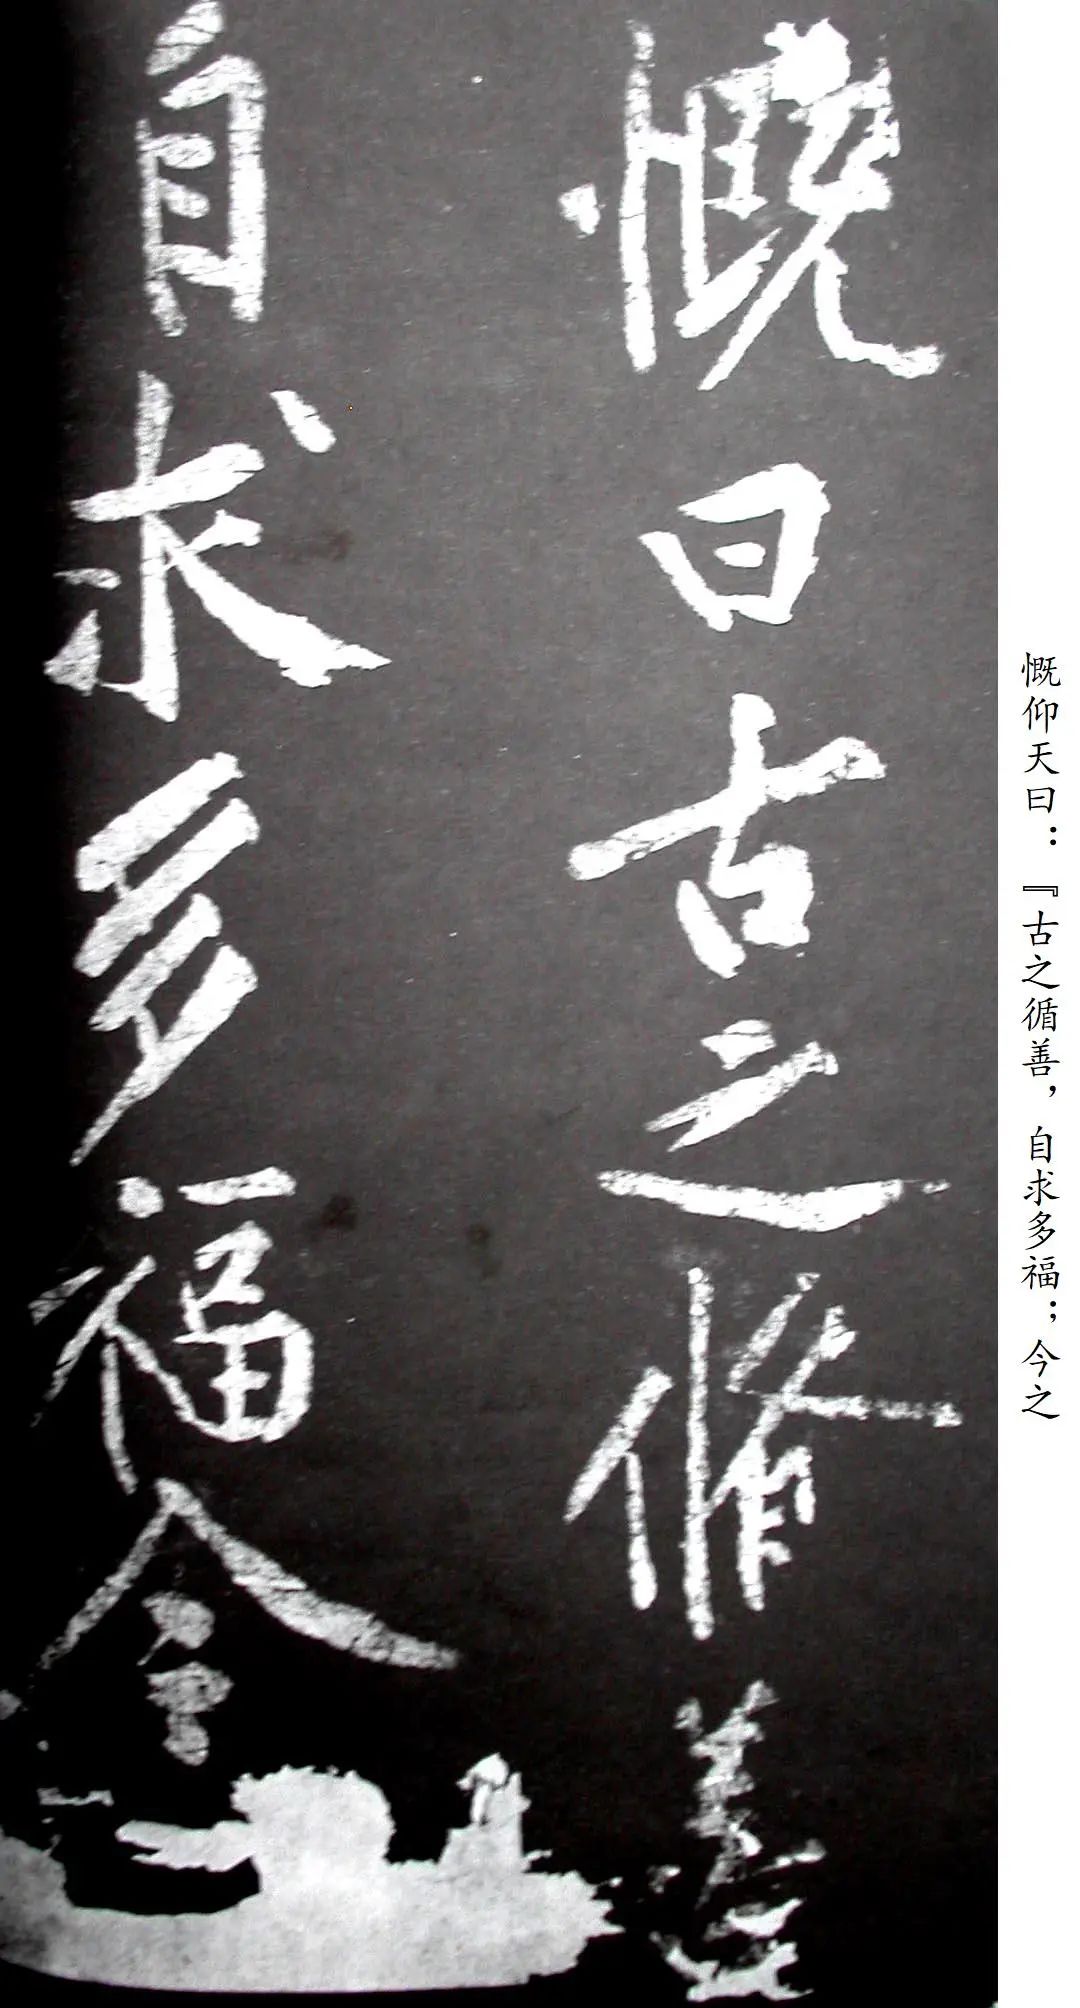 慨仰天曰：『古之循善，自求多福；今之
慨曰古之脩善
自求多福今